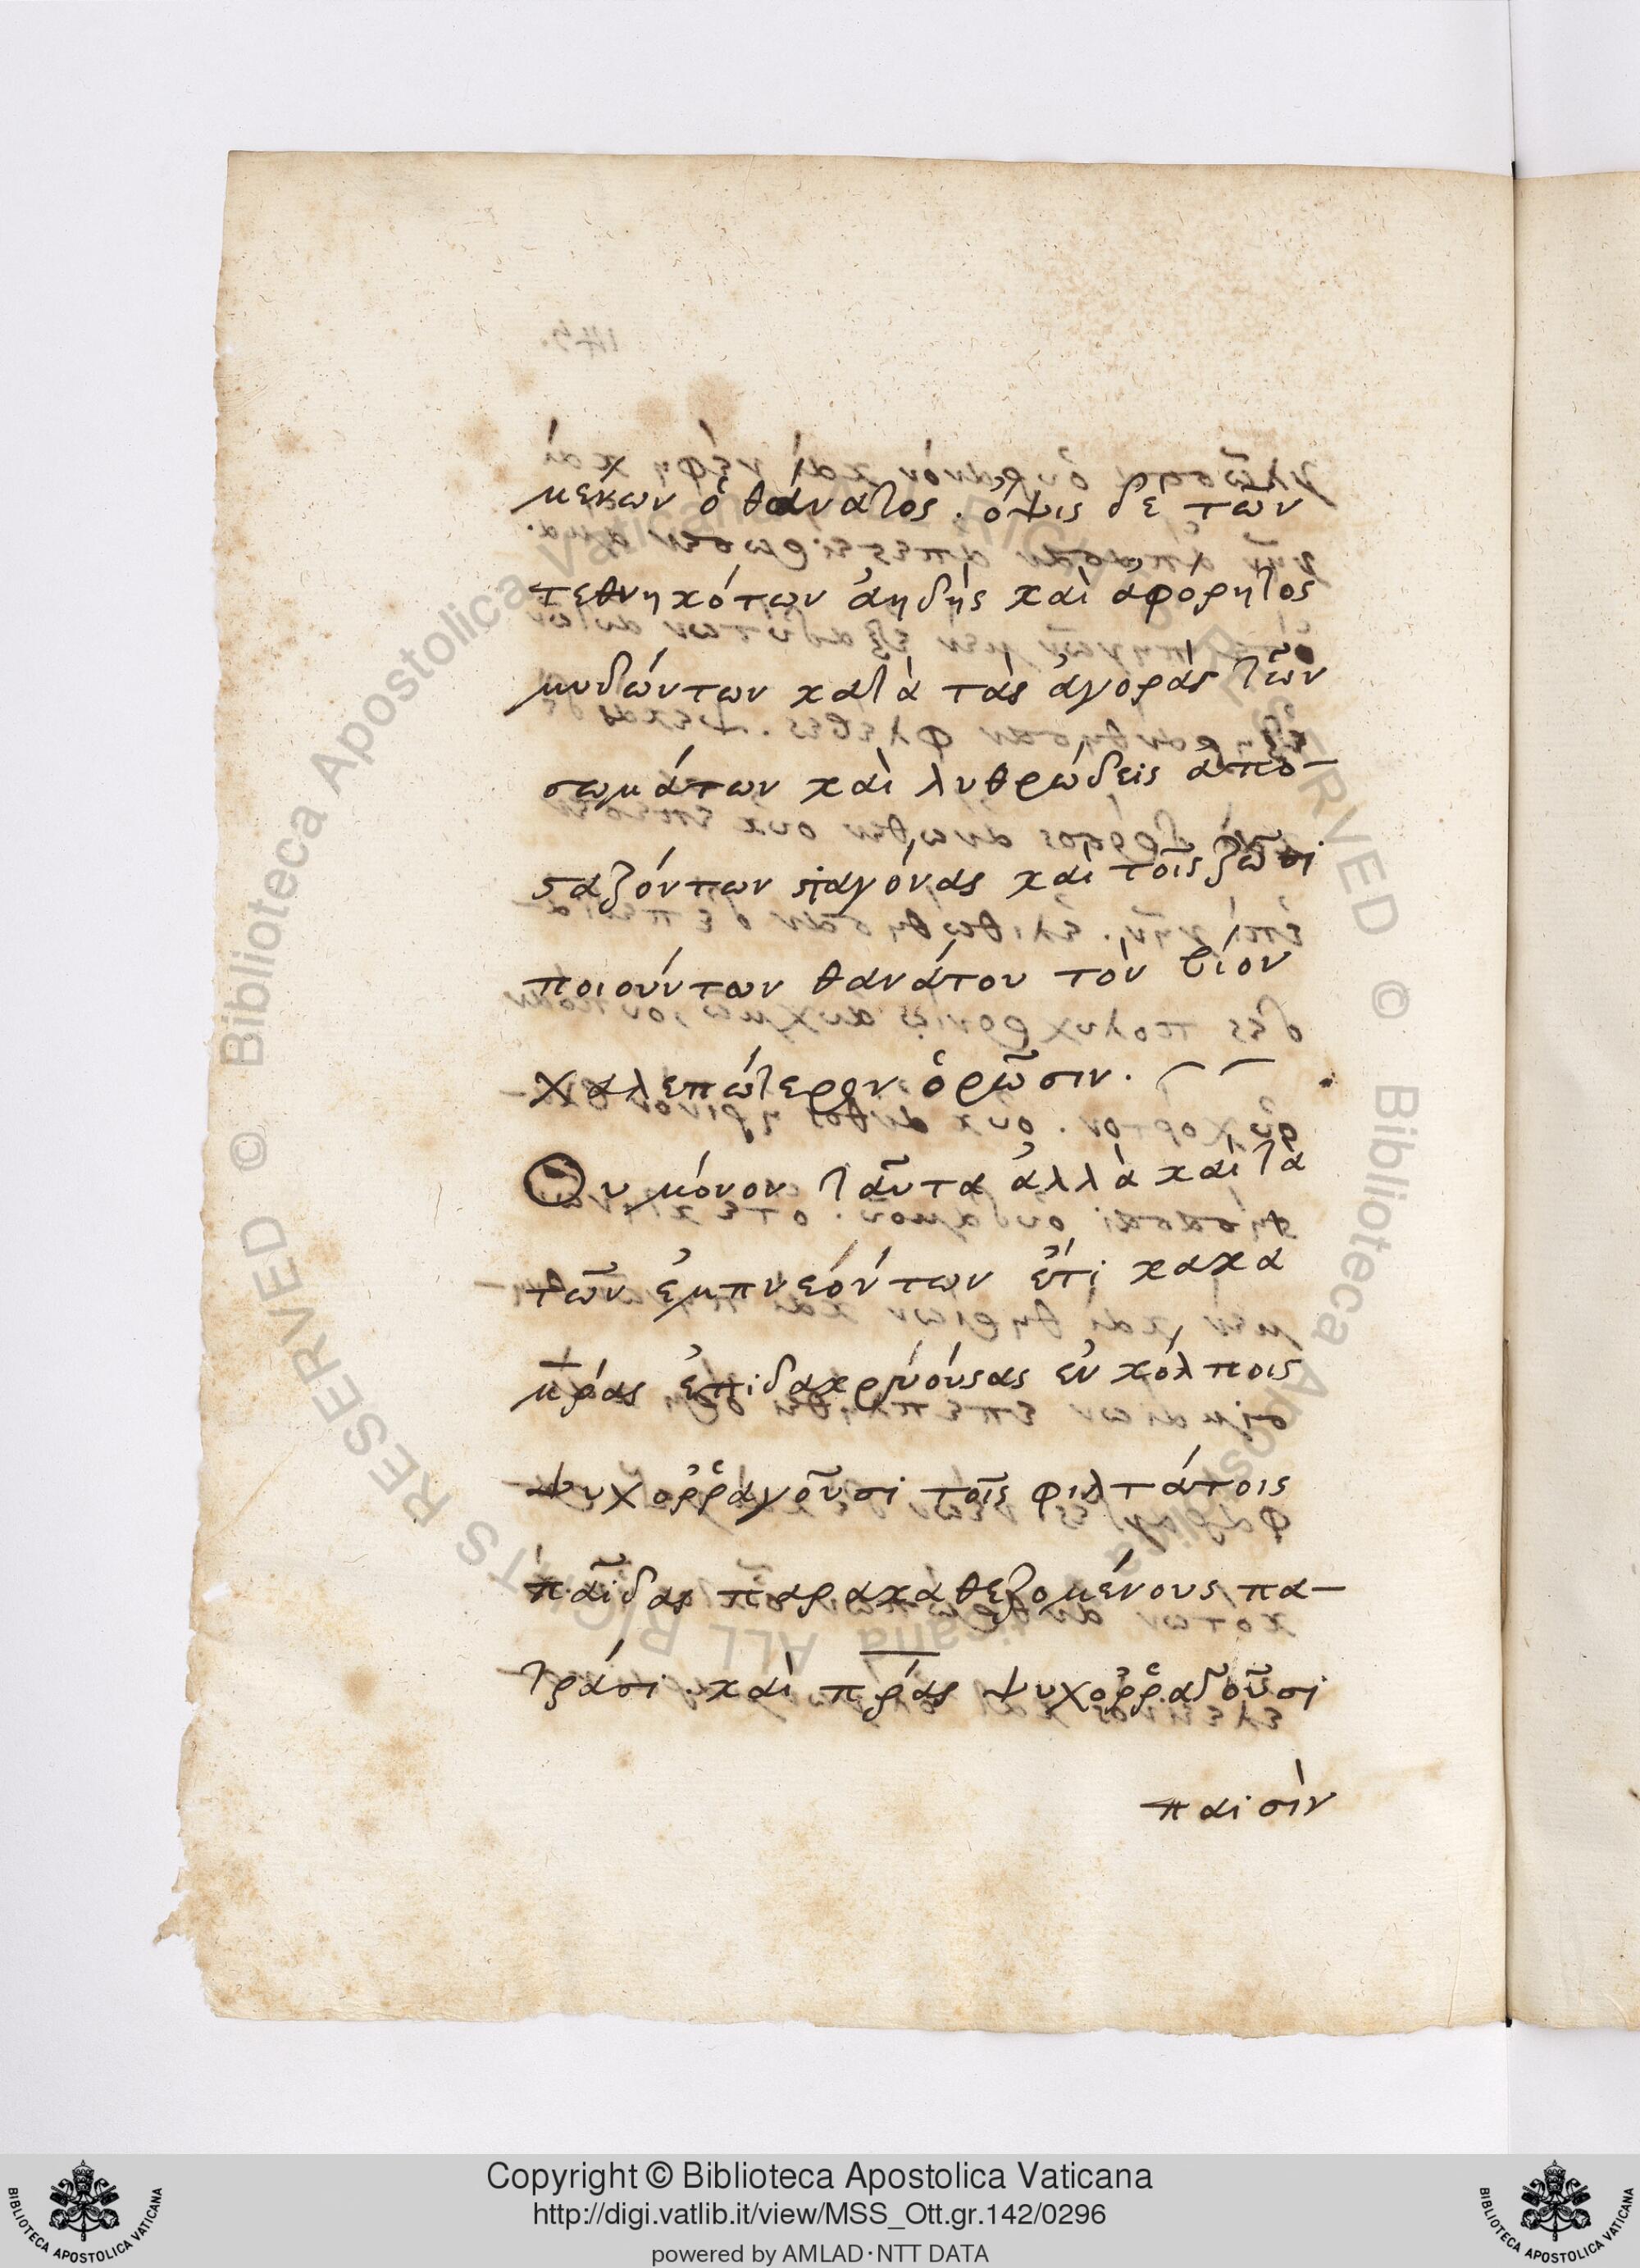 μεκων ὁ θάνατος. ὄψις δὲ τῶν
τεθνηκότων ἀηδὴς καὶ ἀφόρητος
μυδώντων κατὰ τὰς ἀγορὰς τῶν
σωμάτων καὶ λυθρώδεις ἀπο-
σταζόντων σταγόνας καὶ τοῖς ζῶσι
ποιούντων θανάτου τὸν βίον
χαλεπώτερον ὁρῶσιν.
Οὐ μόνον ταῦτα ἀλλὰ καὶ τὰ
τῶν ἐμπνεόντων ἔτι κακὰ
μρ̅άς ἐπιδακρυούσας ἐν κόλποις
ψυχοῤῥαγοῦσι τοῖς φιλτάτοις
παῖδας παρακαθεζομένους πα-
τράσι. καὶ πρ̅άς ψυχοῤῥαδοῦσι
παισὶν
BIBLIOTECA APOSTOLICA VATICANA
Copyright © Biblioteca Apostolica Vaticana
http://digi.vatlib.it/view/MSS_Ott.gr.142/0296
powered by AMLAD·NTT DATA
BIBLIOTECA APOSTOLICA VATICANA